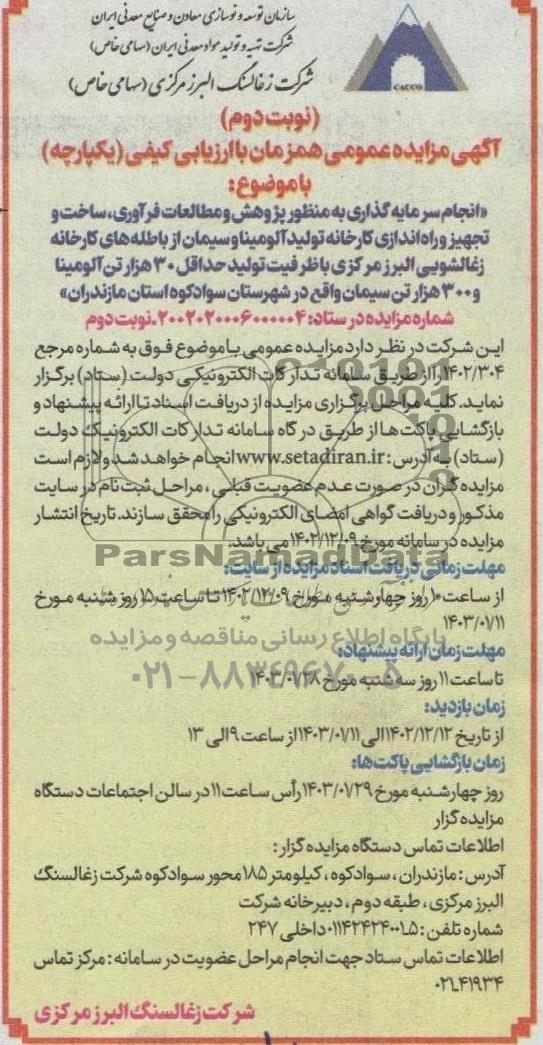 سازمان توسعه و نوسازی معادن و صنایع معدنی ایران
شرکت تهیه و تولید مواد معدنی ایران (سهامی خاص)
شرکت زغالسنگ البرز مرکزی (سهامی خاص)
CACCO
(نوبت دوم)
آگهی مزایده عمومی همزمان با ارزیابی کیفی (یکپارچه)
با موضوع:
«انجام سرمایه گذاری به منظور پژوهش و مطالعات فرآوری، ساخت و
تجهیز و راه اندازی کارخانه تولید آلومینا و سیمان از باطله های کارخانه
زغالشویی البرز مرکزی با ظرفیت تولید حداقل ۳۰ هزار تن آلومینا
و ۳۰۰ هزار تن سیمان واقع در شهرستان سوادکوه استان مازندران»
شماره مزایده در ستاد: ۲۰۰۲۰۲۰۰۰۶۰۰۰۰۰۴-نوبت دوم
این شرکت در نظر دارد مزایده عمومی با موضوع فوق به شماره مرجع
۱۴۰۲/۳۰۴ را از طریق سامانه تدارکات الکترونیکی دولت (ستاد) برگزار
نماید. کلیه مراحل برگزاری مزایده از دریافت اسناد تا ارائه پیشنهاد و
بازگشایی پاکت ها از طریق درگاه سامانه تدارکات الکترونیک دولت
(ستاد) به آدرس: www.setadiran.ir انجام خواهد شد و لازم است
مزایده گران در صورت عدم عضویت قبلی، مراحل ثبت نام در سایت
مذکور و دریافت گواهی امضای الکترونیکی را محقق سازند. تاریخ انتشار
مزایده در سامانه مورخ ۱۴۰۲/۱۲/۰۹ می باشد.
ParsNamadData
مهلت زمانی دریافت اسناد مزایده از سایت:
از ساعت ۱۰ روز چهارشنبه مورخ ۱۴۰۲/۱۲/۰۹ تا ساعت ۱۵ روز شنبه مورخ
۱۴۰۳/۰۱/۱۱
پایگاه اطلاع رسانی مناقصه و مزایده
مهلت زمان ارائه پیشنهاد:
تا ساعت ۱۱ روز سه شنبه مورخ ۱۴۰۳/۰۱/۲۸
۰۲۱-۸۸۳۴۹۶۷۰-۵
زمان بازدید:
از تاریخ ۱۴۰۲/۱۲/۱۲ الی ۱۴۰۳/۰۱/۱۱ از ساعت ۹ الی ۱۳
زمان بازگشایی پاکت ها:
روز چهارشنبه مورخ ۱۴۰۳/۰۱/۲۹ رأس ساعت ۱۱ در سالن اجتماعات دستگاه
مزایده گزار
اطلاعات تماس دستگاه مزایده گزار:
آدرس: مازندران، سوادکوه، کیلومتر ۱۸۵ محور سوادکوه شرکت زغالسنگ
البرز مرکزی، طبقه دوم، دبیرخانه شرکت
شماره تلفن: ۵-۰۱۱۴۲۴۲۴۰۰۱ داخلی ۲۴۷
اطلاعات تماس ستاد جهت انجام مراحل عضویت در سامانه: مرکز تماس
۰۲۱-۴۱۹۳۴
شرکت زغالسنگ البرز مرکزی